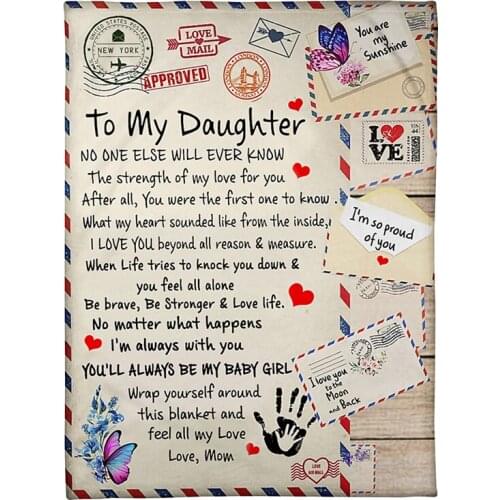 UNITED STATES POSTAGE
NEW YORK
LOVE
MAIL
APPROVED
LONDON
You are my
Sunshine
To My Daughter
NO ONE ELSE WILL EVER KNOW
The strength of my love for you
After all, You were the first one to know .
What my heart sounded like from the inside,
I LOVE YOU beyond all reason & measure.
When Life tries to knock you down &
you feel all alone
Be brave, Be Stronger & Love life.
No matter what happens
I'm always with you
YOU'LL ALWAYS BE MY BABY GIRL
Wrap yourself around
this blanket and
feel all my Love
Love, Mom
LOVE
44
I'm so proud
of you
I love you
to the
Moon
and
Back
LOVE
AIR MAIL